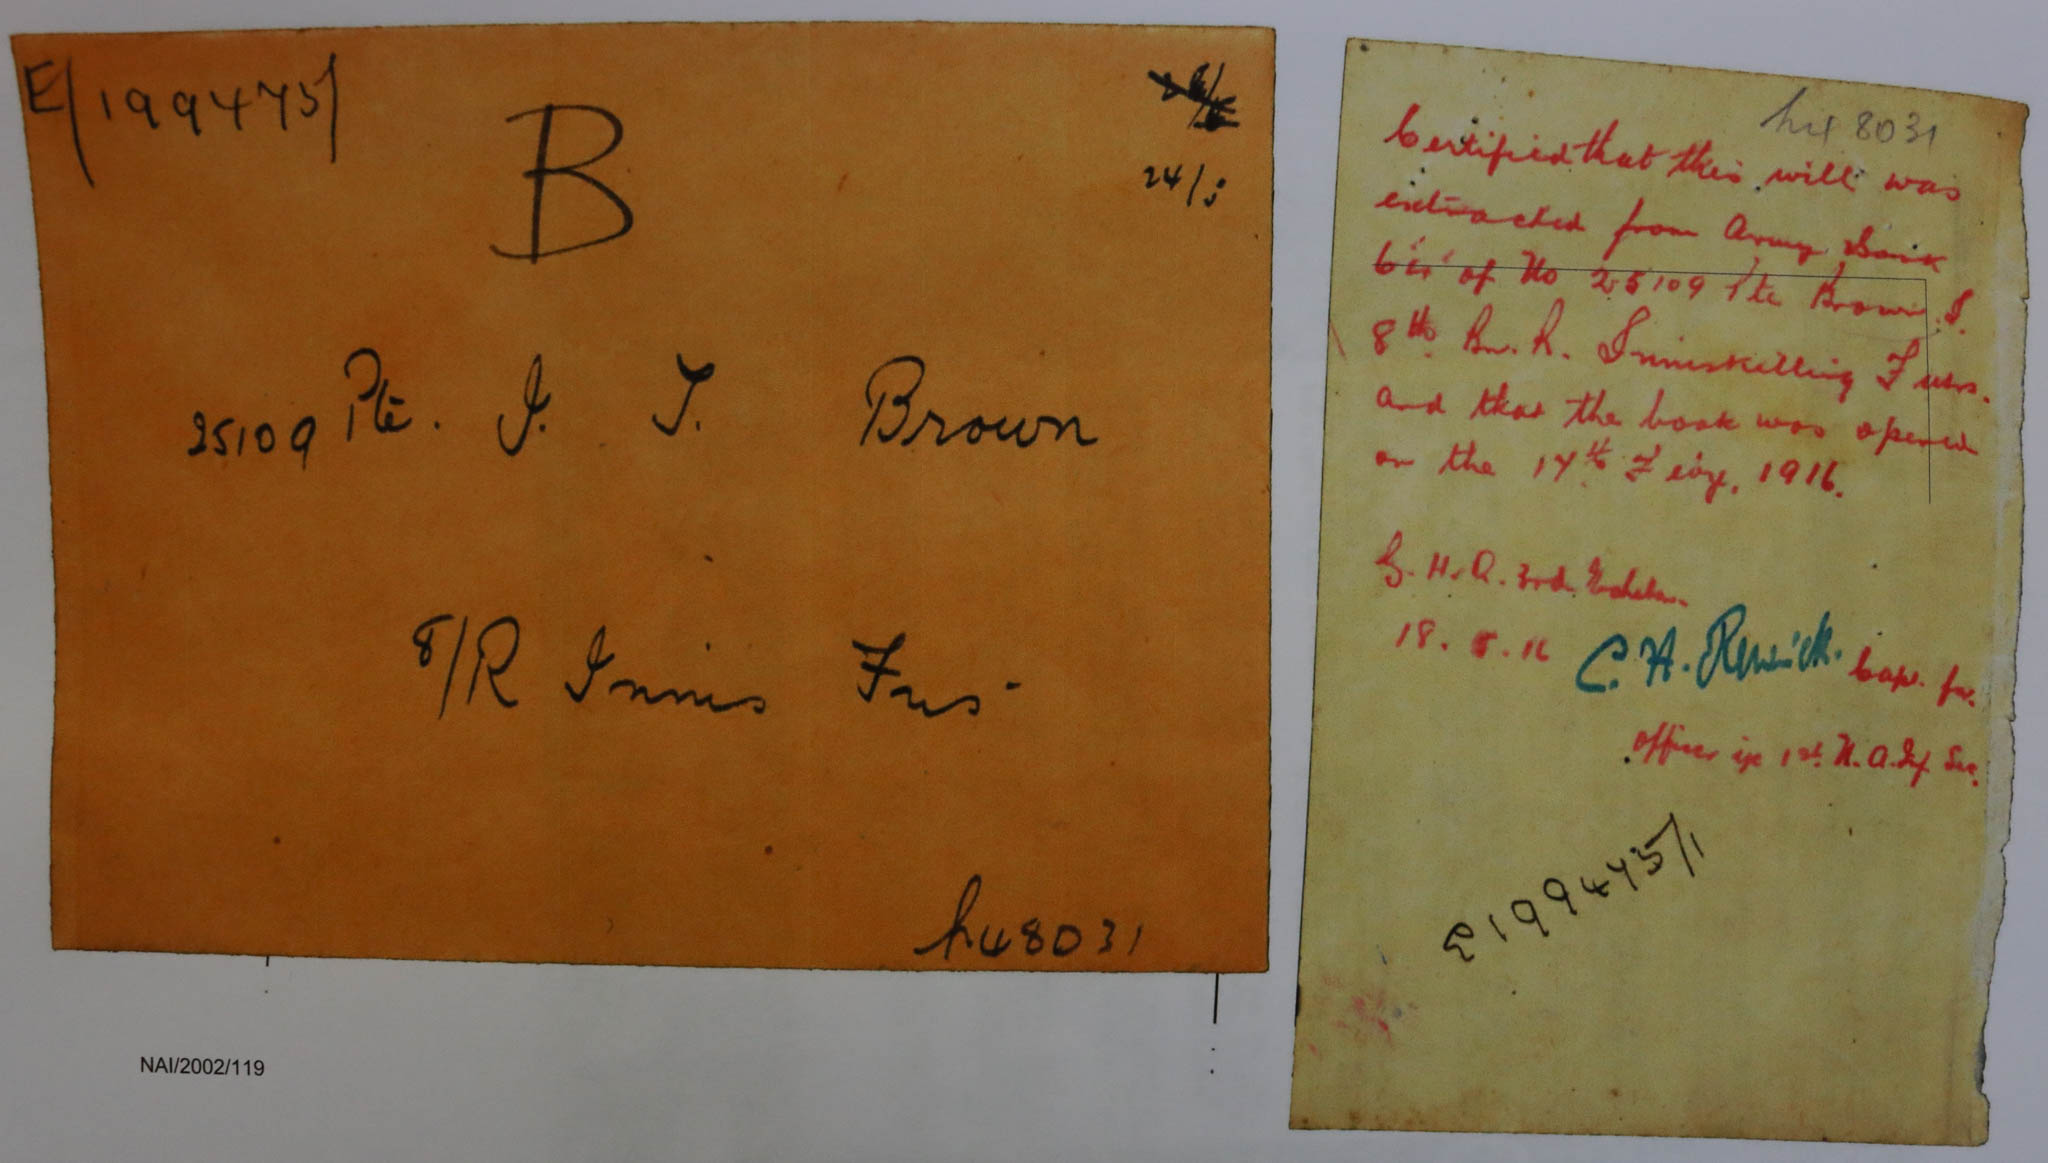 E/199475/
B
24/5
25109 Pte. J. T. Brown
8/R Innis Fus.
h48031
NAI/2002/119
h48031
Certified that this will was
extracted from Army Book
of No 25109 Pte Brown. J.
8th Bn. R. Inniskilling Fusrs.
and that the book was opened
on the 17th Feby, 1916.
G. H. Q. 3rd Echelon
18. 5. 16 C. H. Renwick. Capt. for.
Officer i/c 1st. N. A. Inf. Sec.
E199475/1